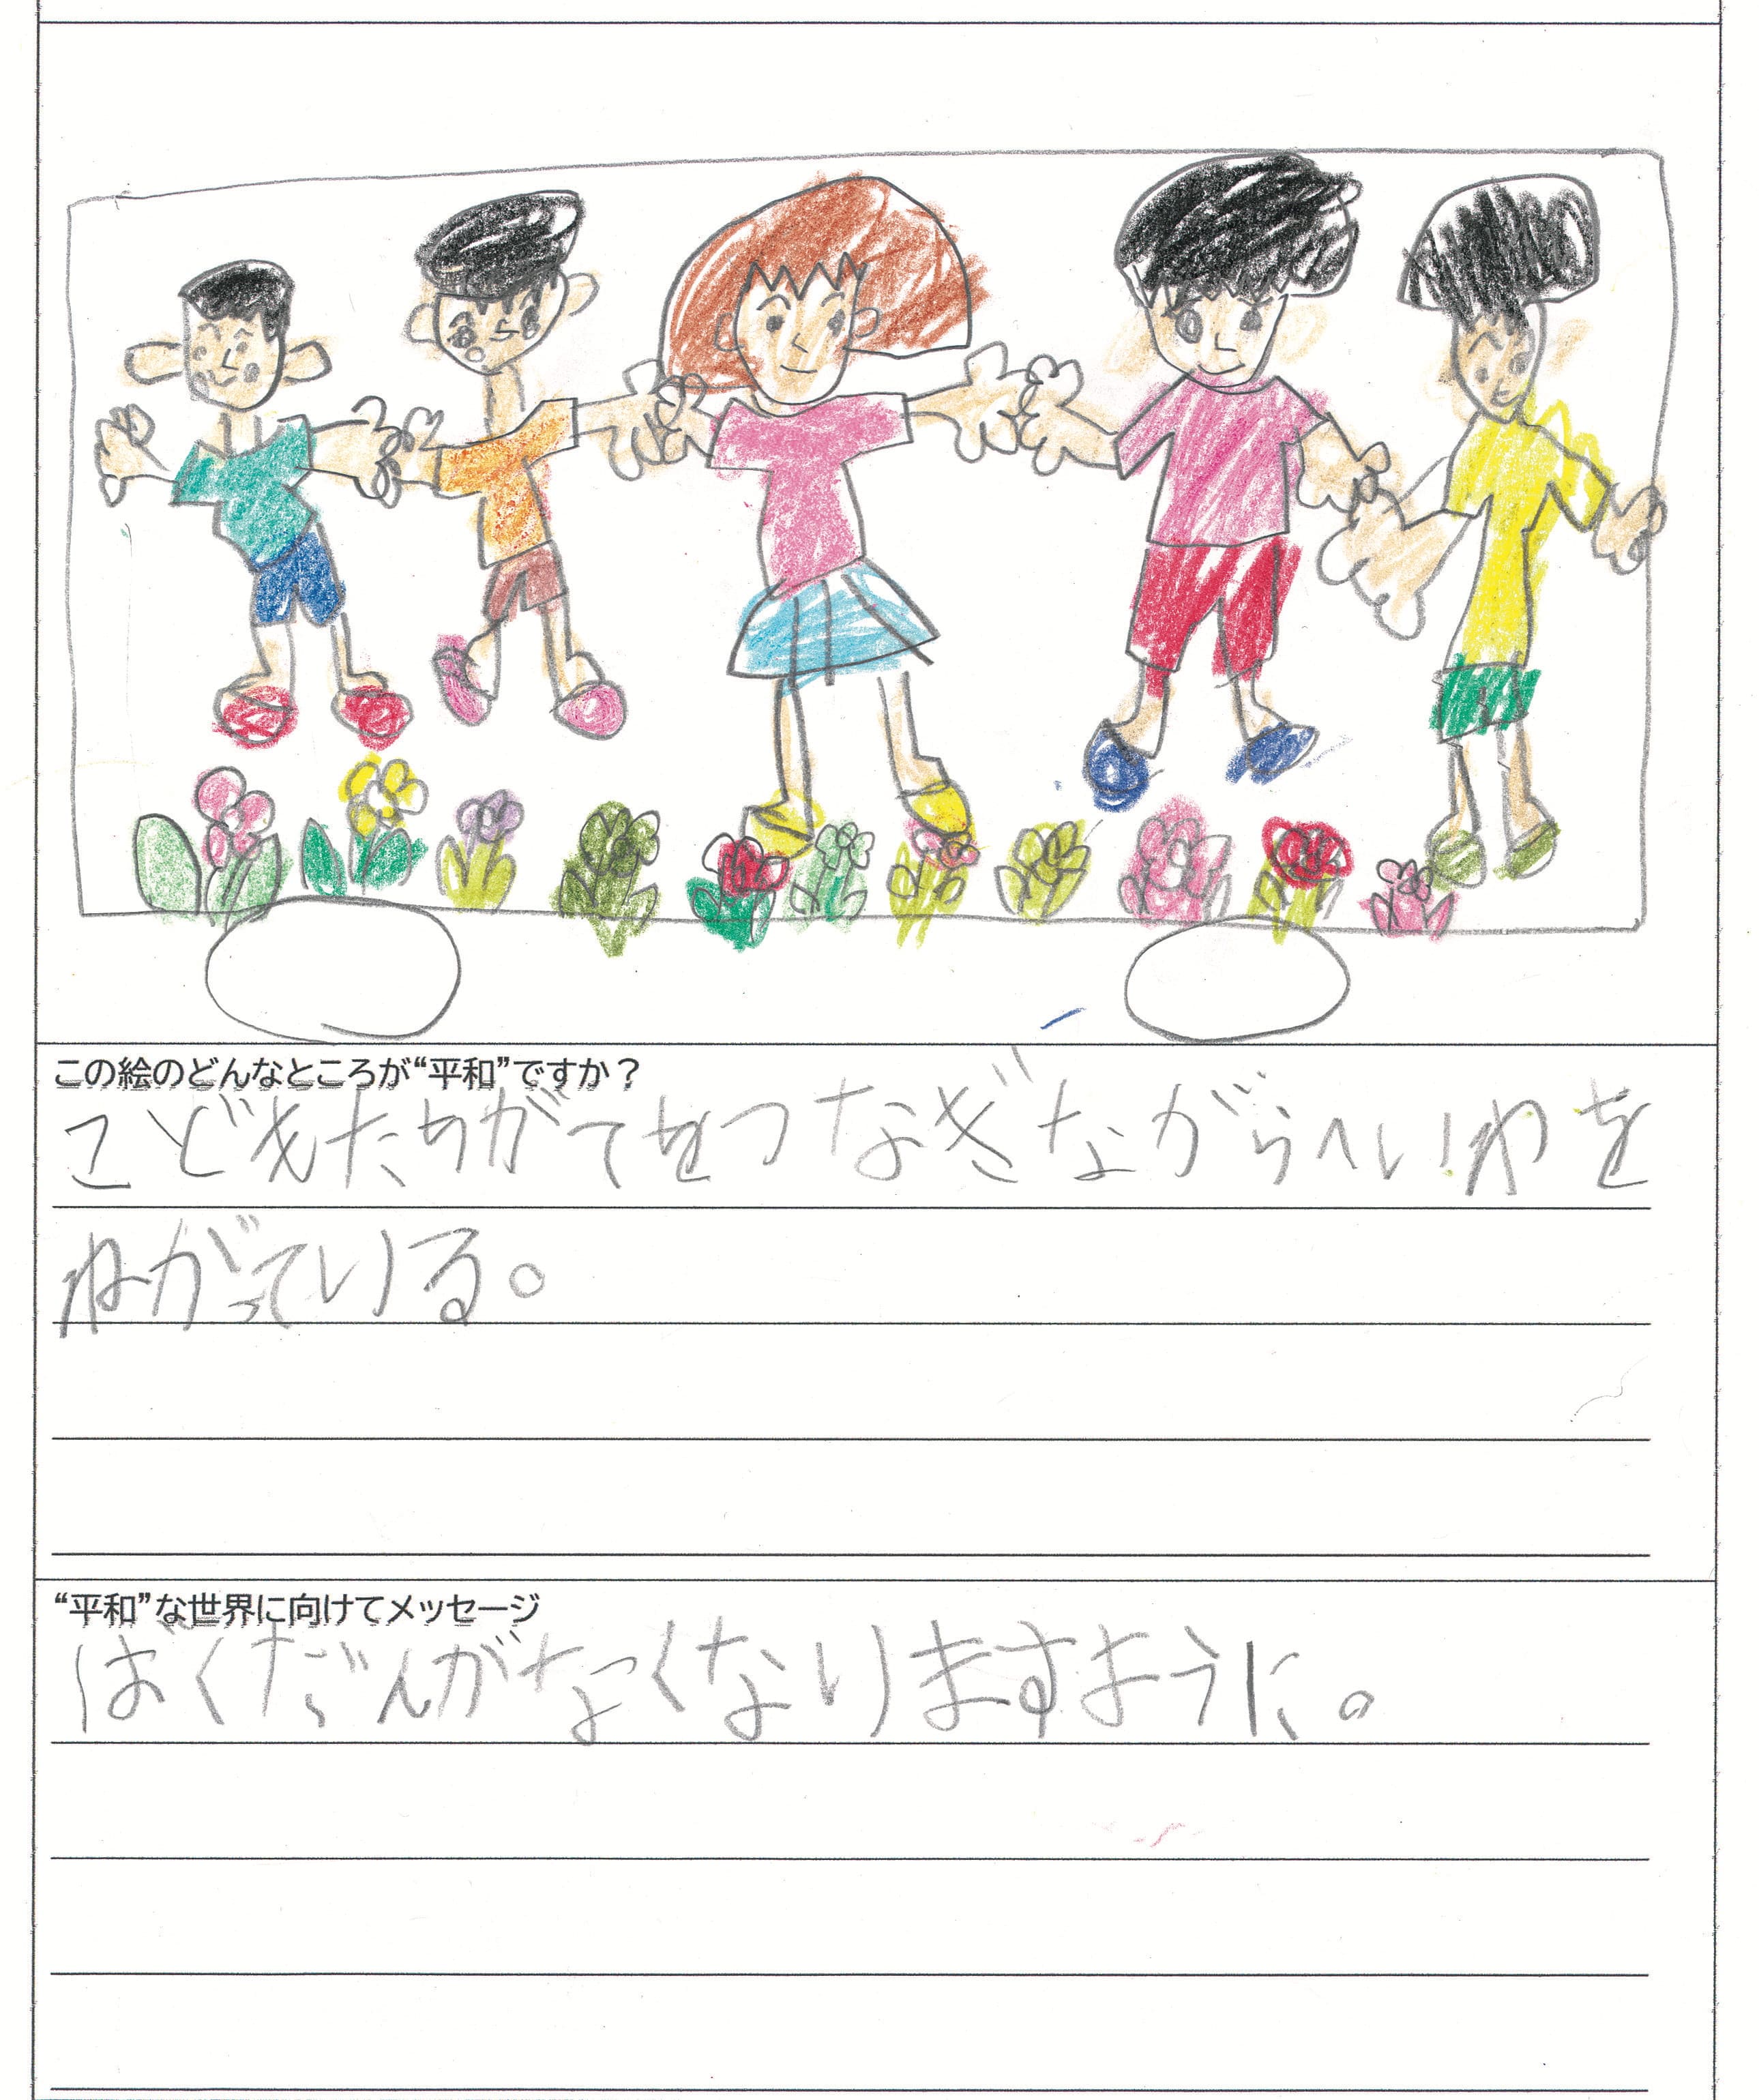 この絵のどんなところが“平和”ですか？
こどもたちがてをつなぎながらへいわを
ねがっている。
“平和”な世界に向けてメッセージ
ばくだんがなくなりますように。